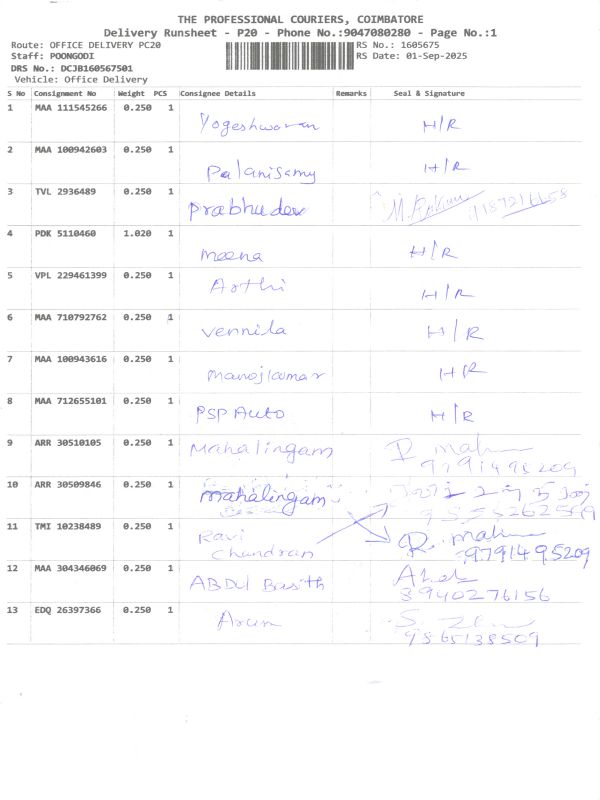 THE PROFESSIONAL COURIERS, COIMBATORE
Delivery Runsheet - P20 - Phone No.:9047080280 - Page No.:1
Route: OFFICE DELIVERY PC20 RS No.: 1605675
Staff: POONGODI RS Date: 01-Sep-2025
DRS No.: DCJB160567501
Vehicle: Office Delivery
S No Consignment No Weight PCS Consignee Details Remarks Seal & Signature
1 MAA 111545266 0.250 1 Yogeshwaran H/R
2 MAA 100942603 0.250 1 Palanisamy H/R
3 TVL 2936489 0.250 1 Prabhudev
4 PDK 5110460 1.020 1 Meena H/R
5 VPL 229461399 0.250 1 Arthi H/R
6 MAA 710792762 0.250 1 Vennila H/R
7 MAA 100943616 0.250 1 Manojkumar H/R
8 MAA 712655101 0.250 1 PSP Auto H/R
9 ARR 30510105 0.250 1 Mahalingam
9791495209
10 ARR 30509846 0.250 1 Mahalingam
11 TMI 10238489 0.250 1 Ravi
Chandran 9791495209
12 MAA 304346069 0.250 1 ABDUL Basith
8940276156
13 EDQ 26397366 0.250 1 Arun
9865138509